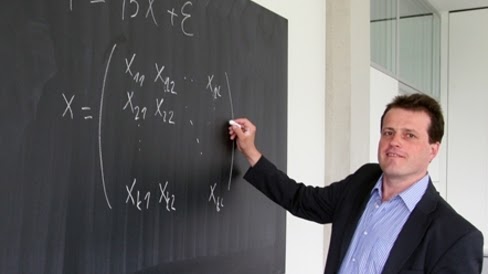 Y = BX + ε
X = ( X11 X12 ·· X1k
X21 X22 : :
: ·.
Xk1 Xk2 Xkk )